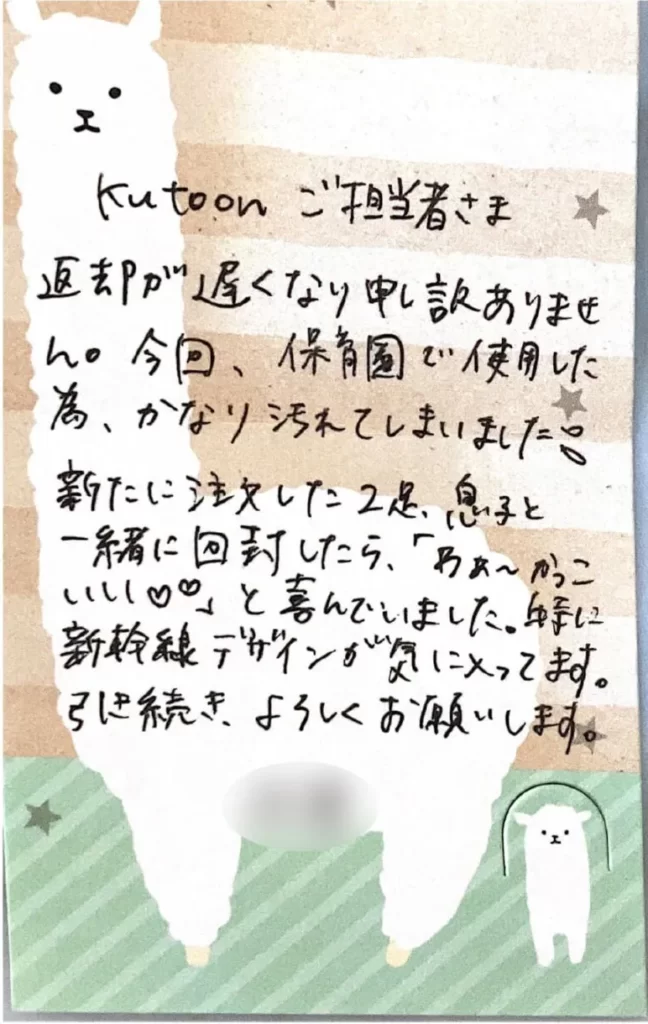 Kutoon ご担当者さま
返却が遅くなり申し訳ありませ
ん。今回、保育園で使用した
為、かなり汚れてしまいました。
新たに注文した2足、息子と
一緒に回封したら、「わぁ〜かっこ
いいい♡♡」と喜んでいました。特に
新幹線デザインが気に入ってます。
引き続き、よろしくお願いします。